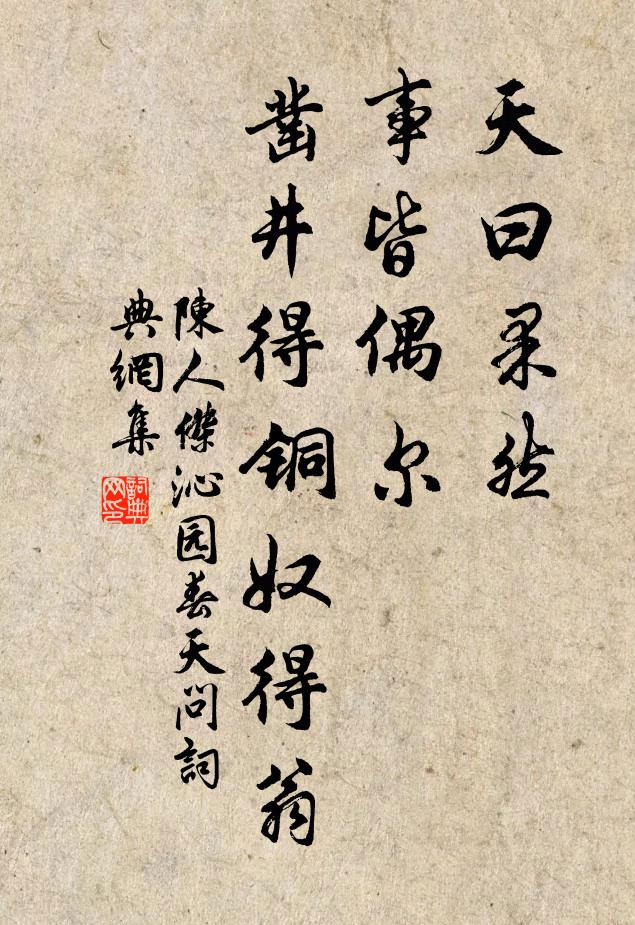 天曰果然
事皆偶尔
凿井得铜奴得翁
陳人傑沁园春天问詞
典網集
詞典网印